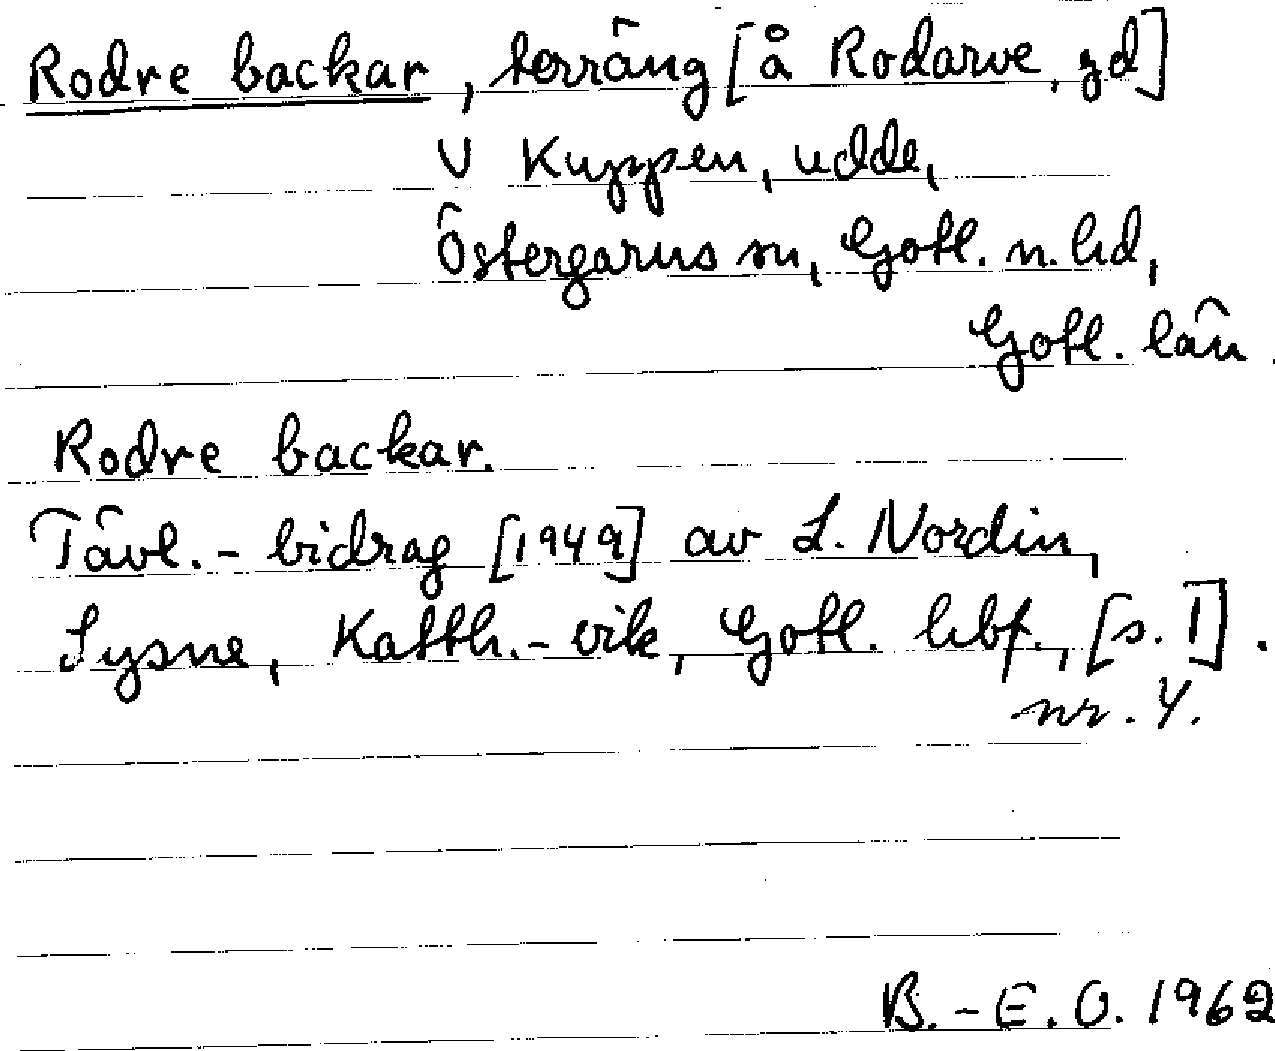 Rodre backar, terräng [å Rodarve, gd]
V Kuppen, udde,
Östergarns sn, Gotl. n. hd,
Gotl. län.
Rodre backar.
Tävl.-bidrag [1949] av L. Nordin,
Sysne, Katth.-vik, Gotl. hbf., [s. 1].
nr. 4.
B.-E. O. 1962